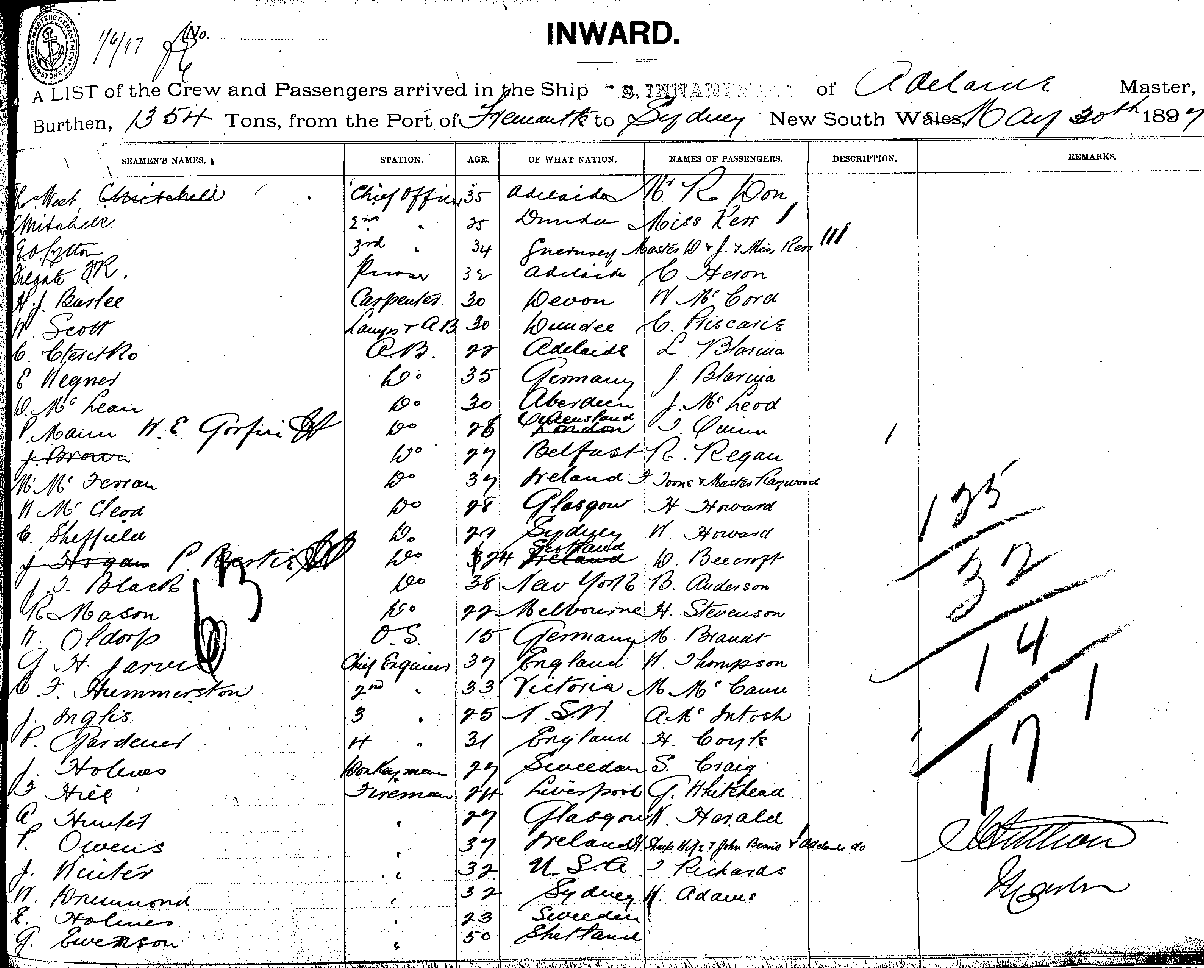 1/6/17 No.
INWARD.
A LIST of the Crew and Passengers arrived in the Ship "S. INNAMINCKA of Adelaide Master,
Burthen, 1354 Tons, from the Port of Fremantle to Sydney New South Wales, May 30th 1897
SEAMEN'S NAMES. STATION. AGE. OF WHAT NATION. NAMES OF PASSENGERS. DESCRIPTION. REMARKS.
West Chief Officer 35 Adelaide Mr R Don
Mitchell 2nd " 25 Dundee Miss Kerr
3rd " 34 Guernsey Master W & J & Miss Kerr
32 Adelaide C Heron
H. J. Carpenter 30 Devon W McCord
W. Scott Lamps & A.B. 30 Dundee C.
C. A.B. 22 Adelaide L
E Wegner Do 35 Germany J
D. McLean Do 30 Aberdeen J. McLeod
P. Mann W. E. Do 28 Queensland London J. Quinn
J. Brown Do 27 Belfast R. Regan
W. McFerran Do 37 Ireland
N McCleod Do 28 Glasgow H Howard
C. Sheffield Do 22 Sydney W. Howard
J Hogan P. Do 24 Scotland Ireland D. Beecroft
J. J. Black Do 38 New York B. Anderson
R. Mason Do 22 Melbourne H. Stevenson
W. Oldorp O.S. 15 Germany M. Brandt
G. H. Jarvis Chief Engineer 37 England W. Thompson
C. F. Hummerston 2nd " 33 Victoria M. McCann
J. Inglis 3 " 25 N.S.W. A. McIntosh
P. Gardener 4 " 31 England H. Coyle
J. Holmes Donkeyman 27 Sweeden S. Craig
Hill Fireman 24 Liverpool G. Whitehead
A. Hunter " 27 Glasgow W. Herald
P. Owens " 37 Ireland
J. Winter " 32 U.S.A J Richards
W. Drummond " 32 Sydney W. Adams
E. Holmes " 23 Sweeden
G. Swenson " 50 Shetland
125
32
14
1
17